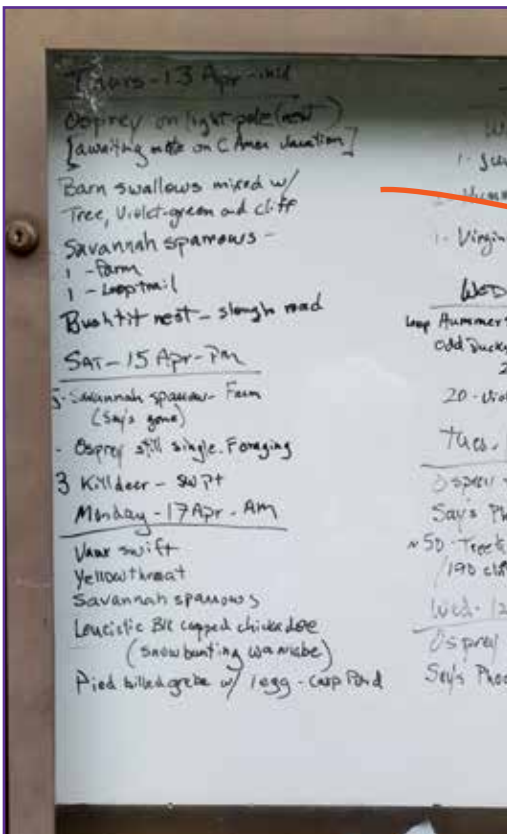 Thurs - 13 Apr - mid
Osprey on light pole (nest)
[awaiting mate on C. Amer vacation]
Barn swallows mixed w/
Tree, Violet-green and cliff
Savannah sparrows -
1 - Farm
1 - Loop trail
Bushtit nest - slough road
SAT - 15 Apr - PM
5 - Savannah sparrow - Farm
(Say's gone)
- Osprey still single. Foraging
3 Killdeer - SW Pt
Monday - 17 Apr - AM
Vaux swift
Yellowthroat
Savannah sparrows
Leucistic Blk capped chickadee
(snow bunting wannabe)
Pied billed grebe w/ 1 egg - Carp Pond
1 -
1 - Virgin
WED
Loop Hummer
odd Ducky
20 - Viol
Tues.
Osprey
Say's Ph
~50 - Tree &
/190 cli
Wed - 12
Osprey
Say's Phoe